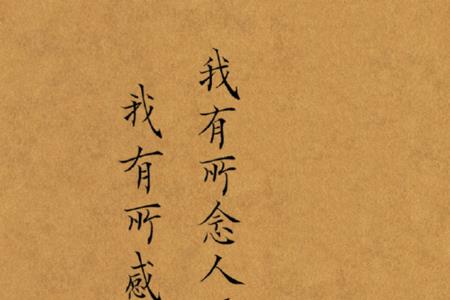 我有所念人
我有所感